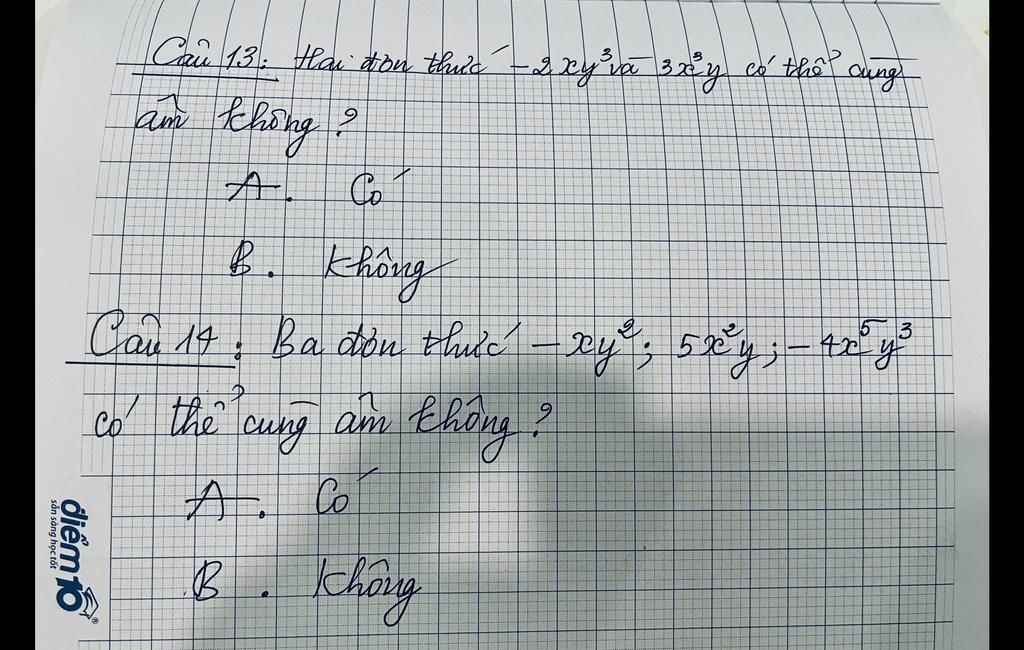 Câu 13: Hai đơn thức -2xy³ và 3x³y có thể cùng
âm không?
A. Có
B. Không
Câu 14: Ba đơn thức -xy²; 5x²y; -4x⁵y³
có thể cùng âm không?
A. Có
B. Không
điểm 10
sẵn sàng học tốt